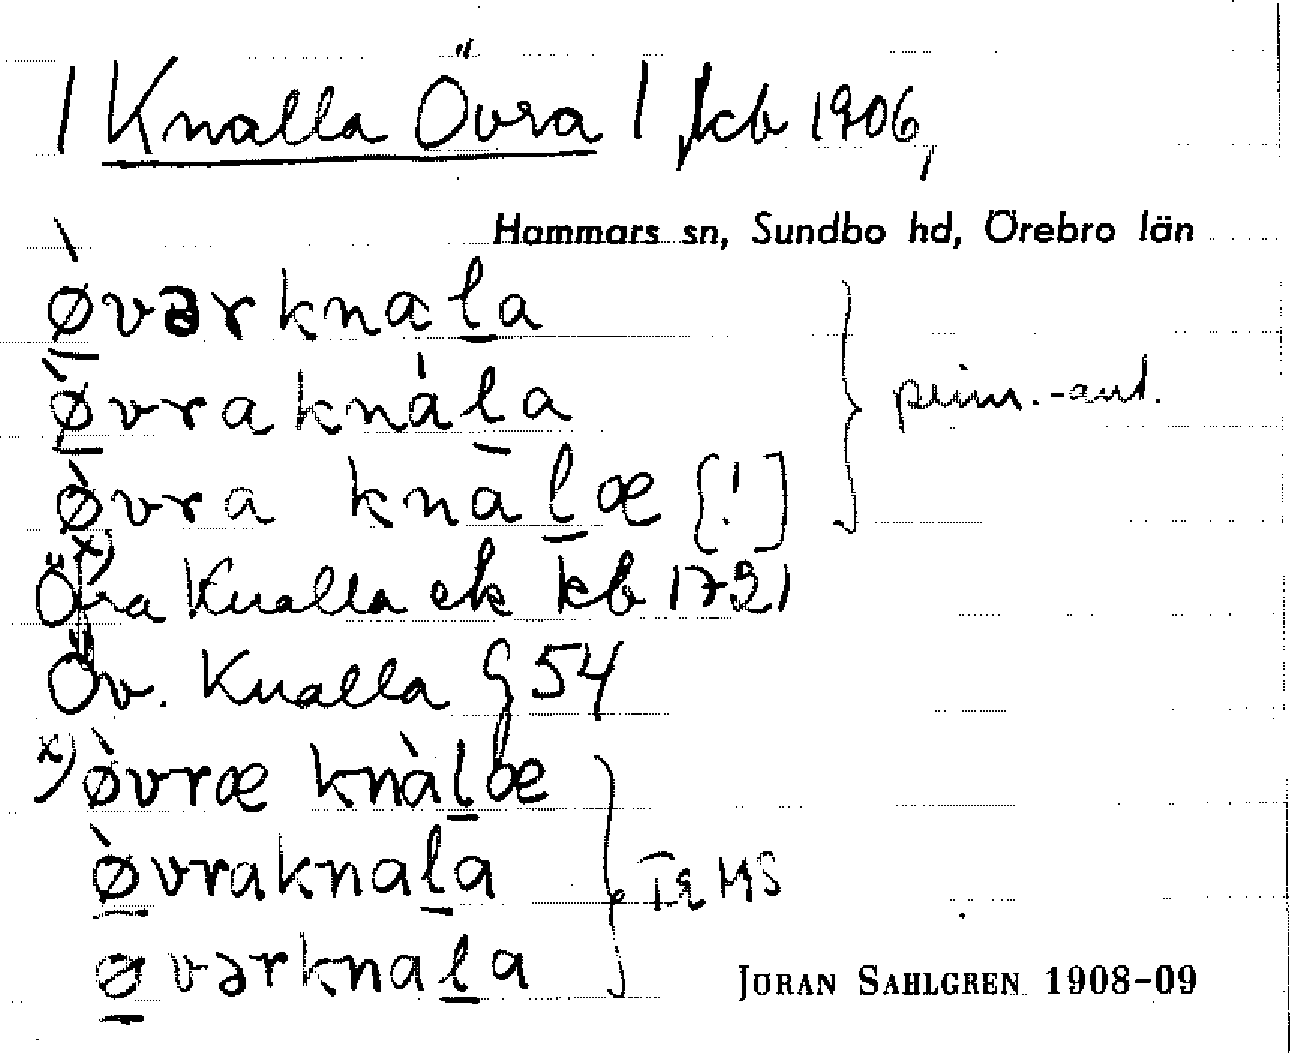 | Knalla Övra | kb 1906,
Hammars sn, Sundbo hd, Örebro län
ø̀vərknala
ø̀vraknàla
ø̀vra knalæ [!] } prim.-ant.
Öfra Knalla ek kb 1721
Öv. Knalla G 54
x) ø̀vræ knàlæ
ø̀vraknala
øvərknala
JÖRAN SAHLGREN 1908-09